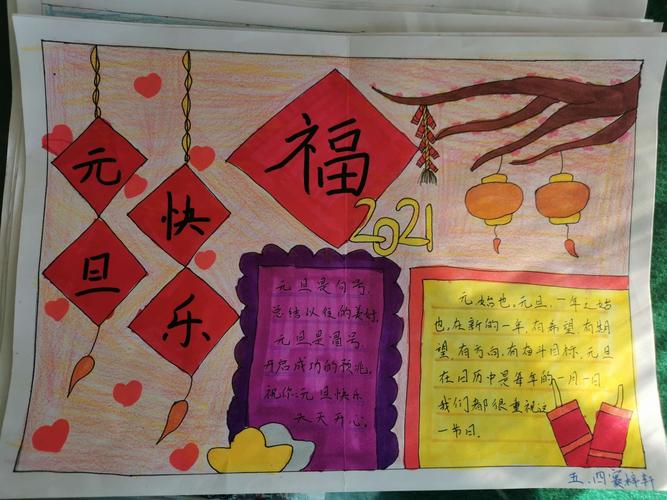 元旦
快乐
福
2021
元旦是句号,
总结以往的美好,
元旦是冒号,
开启成功的预兆,
祝你:元旦快乐
天天开心。
元始也,元旦,一年之始
也,在新的一年,有希望,有期
望,有方向,有奋斗目标,元旦
在日历中是每年的一月一日
我们都很重视这
一节日.
五.四 梓轩